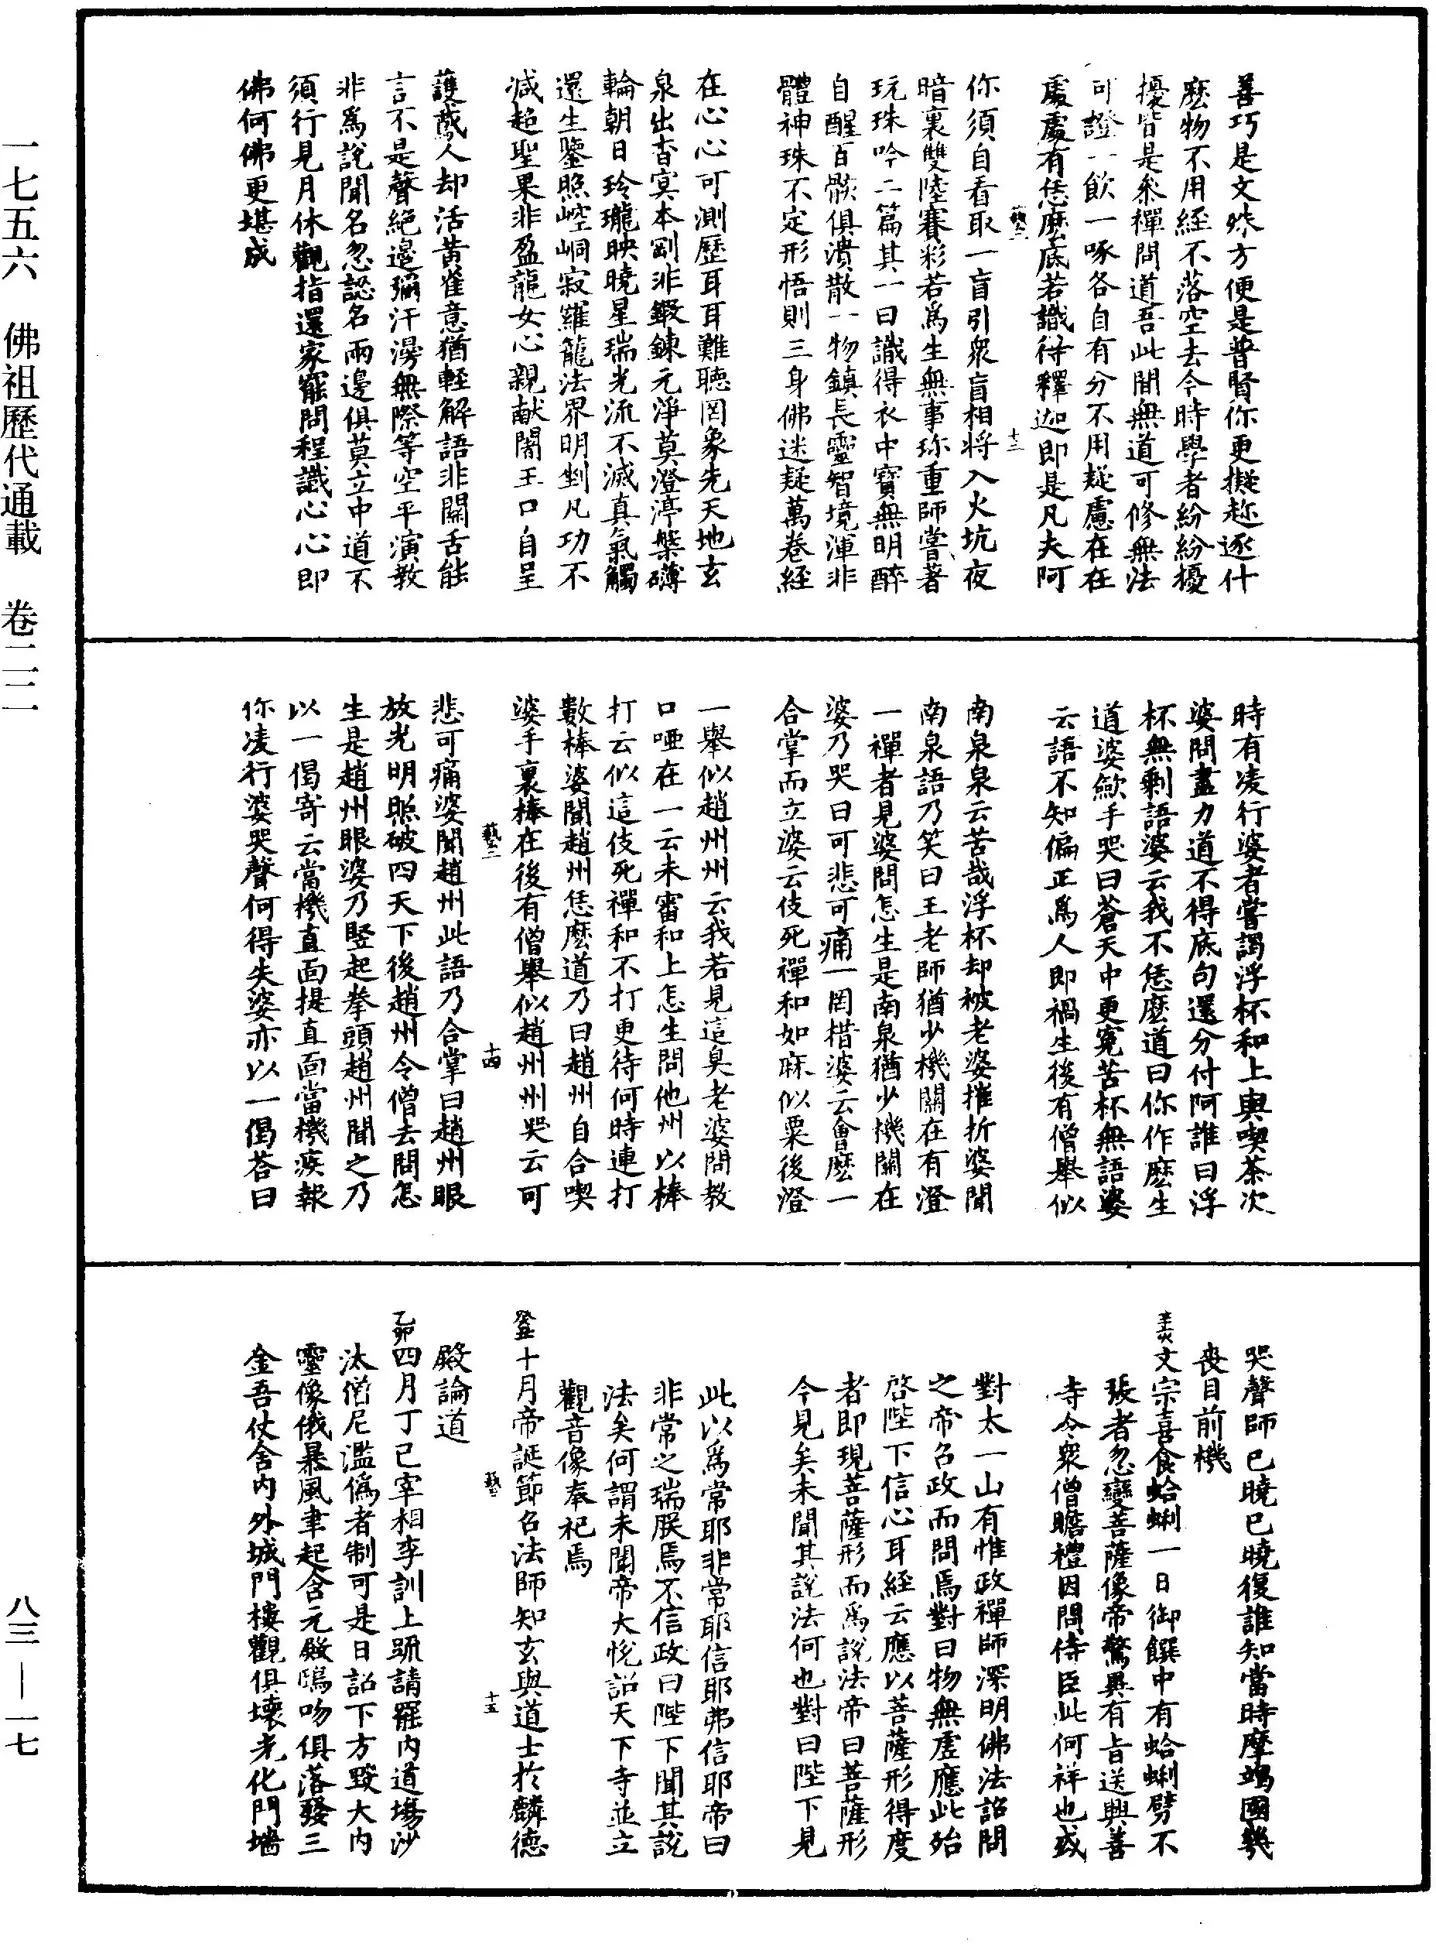 善巧是文殊方便是普賢你更擬趂逐什
麽物不用經不落空去今時學者紛紛擾
擾皆是參禪問道吾此間無道可修無法
可證一飲一啄各自有分不用疑慮在在
處處有恁麽底若識得釋迦即是凡夫阿
你須自看取一盲引衆盲相將入火坑夜
暗裏雙陸賽彩若爲生無事珎重師嘗著
玩珠吟二篇其一曰識得衣中寶無明醉
自醒百骸俱潰散一物鎮長靈智境渾非
體神珠不定形悟則三身佛迷疑萬卷經
在心心可測歷耳耳難聽罔象先天地玄
泉出杳冥本剛非鍛鍊元淨莫澄渟槃礴
輪朝日玲瓏映曉星瑞光流不滅真氣觸
還生鑒照崆峒寂羅籠法界明剉凡功不
滅超聖果非盈龍女心親献闍王口自呈
護鵞人却活黃雀意猶輕解語非關舌能
言不是聲絕邊彌汗漫無際等空平演教
非爲說聞名忽認名兩邊俱莫立中道不
須行見月休觀指還家罷問程識心心即
佛何佛更堪成
時有凌行婆者嘗謁浮杯和上與喫茶次
婆問盡力道不得底句還分付阿誰曰浮
杯無剩語婆云我不恁麽道曰你作麽生
道婆歛手哭曰蒼天中更冤苦杯無語婆
云語不知偏正爲人即禍生後有僧舉似
南泉泉云苦哉浮杯却被老婆摧折婆聞
南泉語乃笑曰王老師猶少機關在有澄
一禪者見婆問怎生是南泉猶少機關在
婆乃哭曰可悲可痛一罔措婆云會麽一
合掌而立婆云伎死禪和如麻似粟後澄
一舉似趙州州云我若見這臭老婆問教
口啞在一云未審和上怎生問他州以棒
打云似這伎死禪和不打更待何時連打
數棒婆聞趙州恁麽道乃曰趙州自合喫
婆手裏棒在後有僧舉似趙州州哭云可
悲可痛婆聞趙州此語乃合掌曰趙州眼
放光明照破四天下後趙州令僧去問怎
生是趙州眼婆乃竪起拳頭趙州聞之乃
以一偈寄云當機直面提直面當機疾報
你凌行婆哭聲何得失婆亦以一偈荅曰
哭聲師已曉已曉復誰知當時摩竭國幾
丧目前機
辛亥文宗喜食蛤蜊一日御饌中有蛤蜊劈不
張者忽變菩薩像帝驚異有旨送興善
寺令衆僧瞻禮因問侍臣此何祥也或
對太一山有惟政禪師深明佛法詔問
之帝召政而問焉對曰物無虛應此殆
啓陛下信心耳經云應以菩薩形得度
者即現菩薩形而爲說法帝曰菩薩形
今見矣未聞其說法何也對曰陛下見
此以爲常耶非常耶信耶弗信耶帝曰
非常之瑞朕焉不信政曰陛下聞其說
法矣何謂未聞帝大悅詔天下寺並立
觀音像奉祀焉
癸丑十月帝誕節召法師知玄與道士於麟德
殿論道
乙卯四月丁己宰相李訓上䟽請罷內道場沙
汰僧尼濫偽者制可是日詔下方毀大內
靈像俄暴風聿起含元殿鴟吻俱落發三
金吾仗舍內外城門樓觀俱壞光化門墻
一七五六 佛祖歷代通載 卷二二
八三—一七
十三
藝二
十四
十五